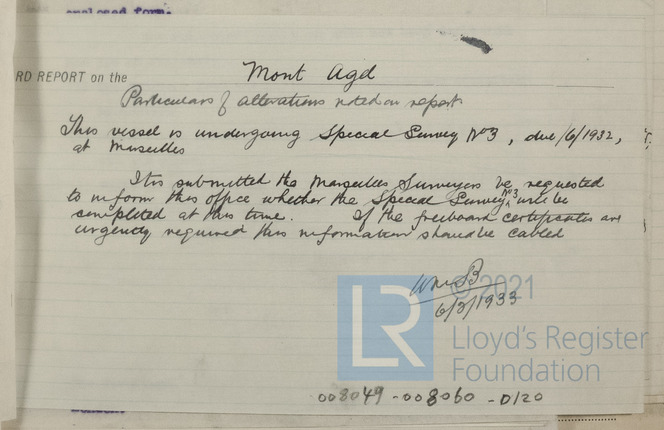 enclosed form.
RD REPORT on the Mont Agel
Particulars of alterations noted on report
This vessel is undergoing Special Survey No3, due /6/1932,
at Marseilles
It is submitted the Marseilles Surveyors be requested
to inform this office whether the Special Survey No3 will be
completed at this time. If the freeboard certificates are
urgently required this information should be cabled
6/3/1933
© 2021
LR
Lloyd's Register
Foundation
008049-008060-0120